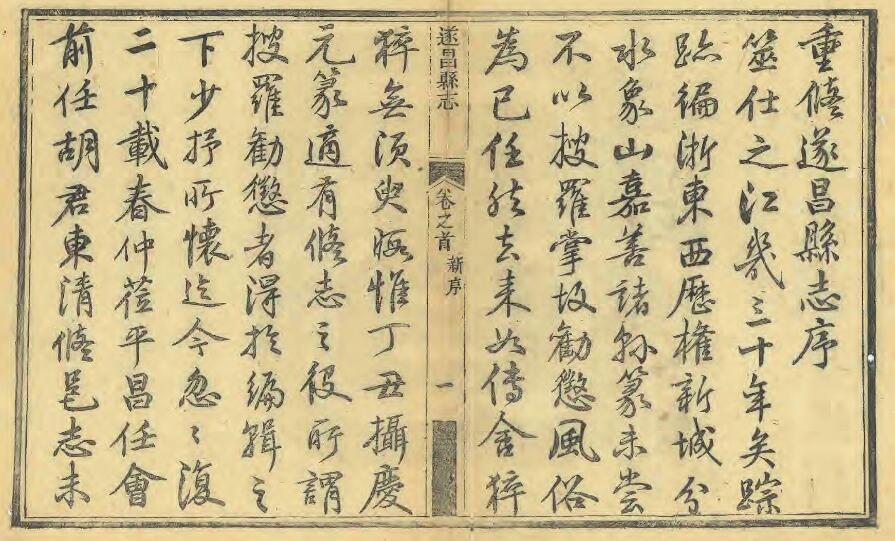 重脩遂昌縣志序
筮仕之江幾三十年矣蹤
跡徧浙東西歷權新城分
水象山嘉善諸縣篆未嘗
不以搜羅掌故勸懲風俗
為己任然去来如傳舍猝
遂昌縣志 卷之首 新序 一
猝無須臾暇惟丁丑攝慶
元篆適有脩志之役所謂
搜羅勸懲者得於編輯之
下少抒所懷迄今忽〻復
二十載春仲莅平昌任會
前任胡君東清脩邑志未